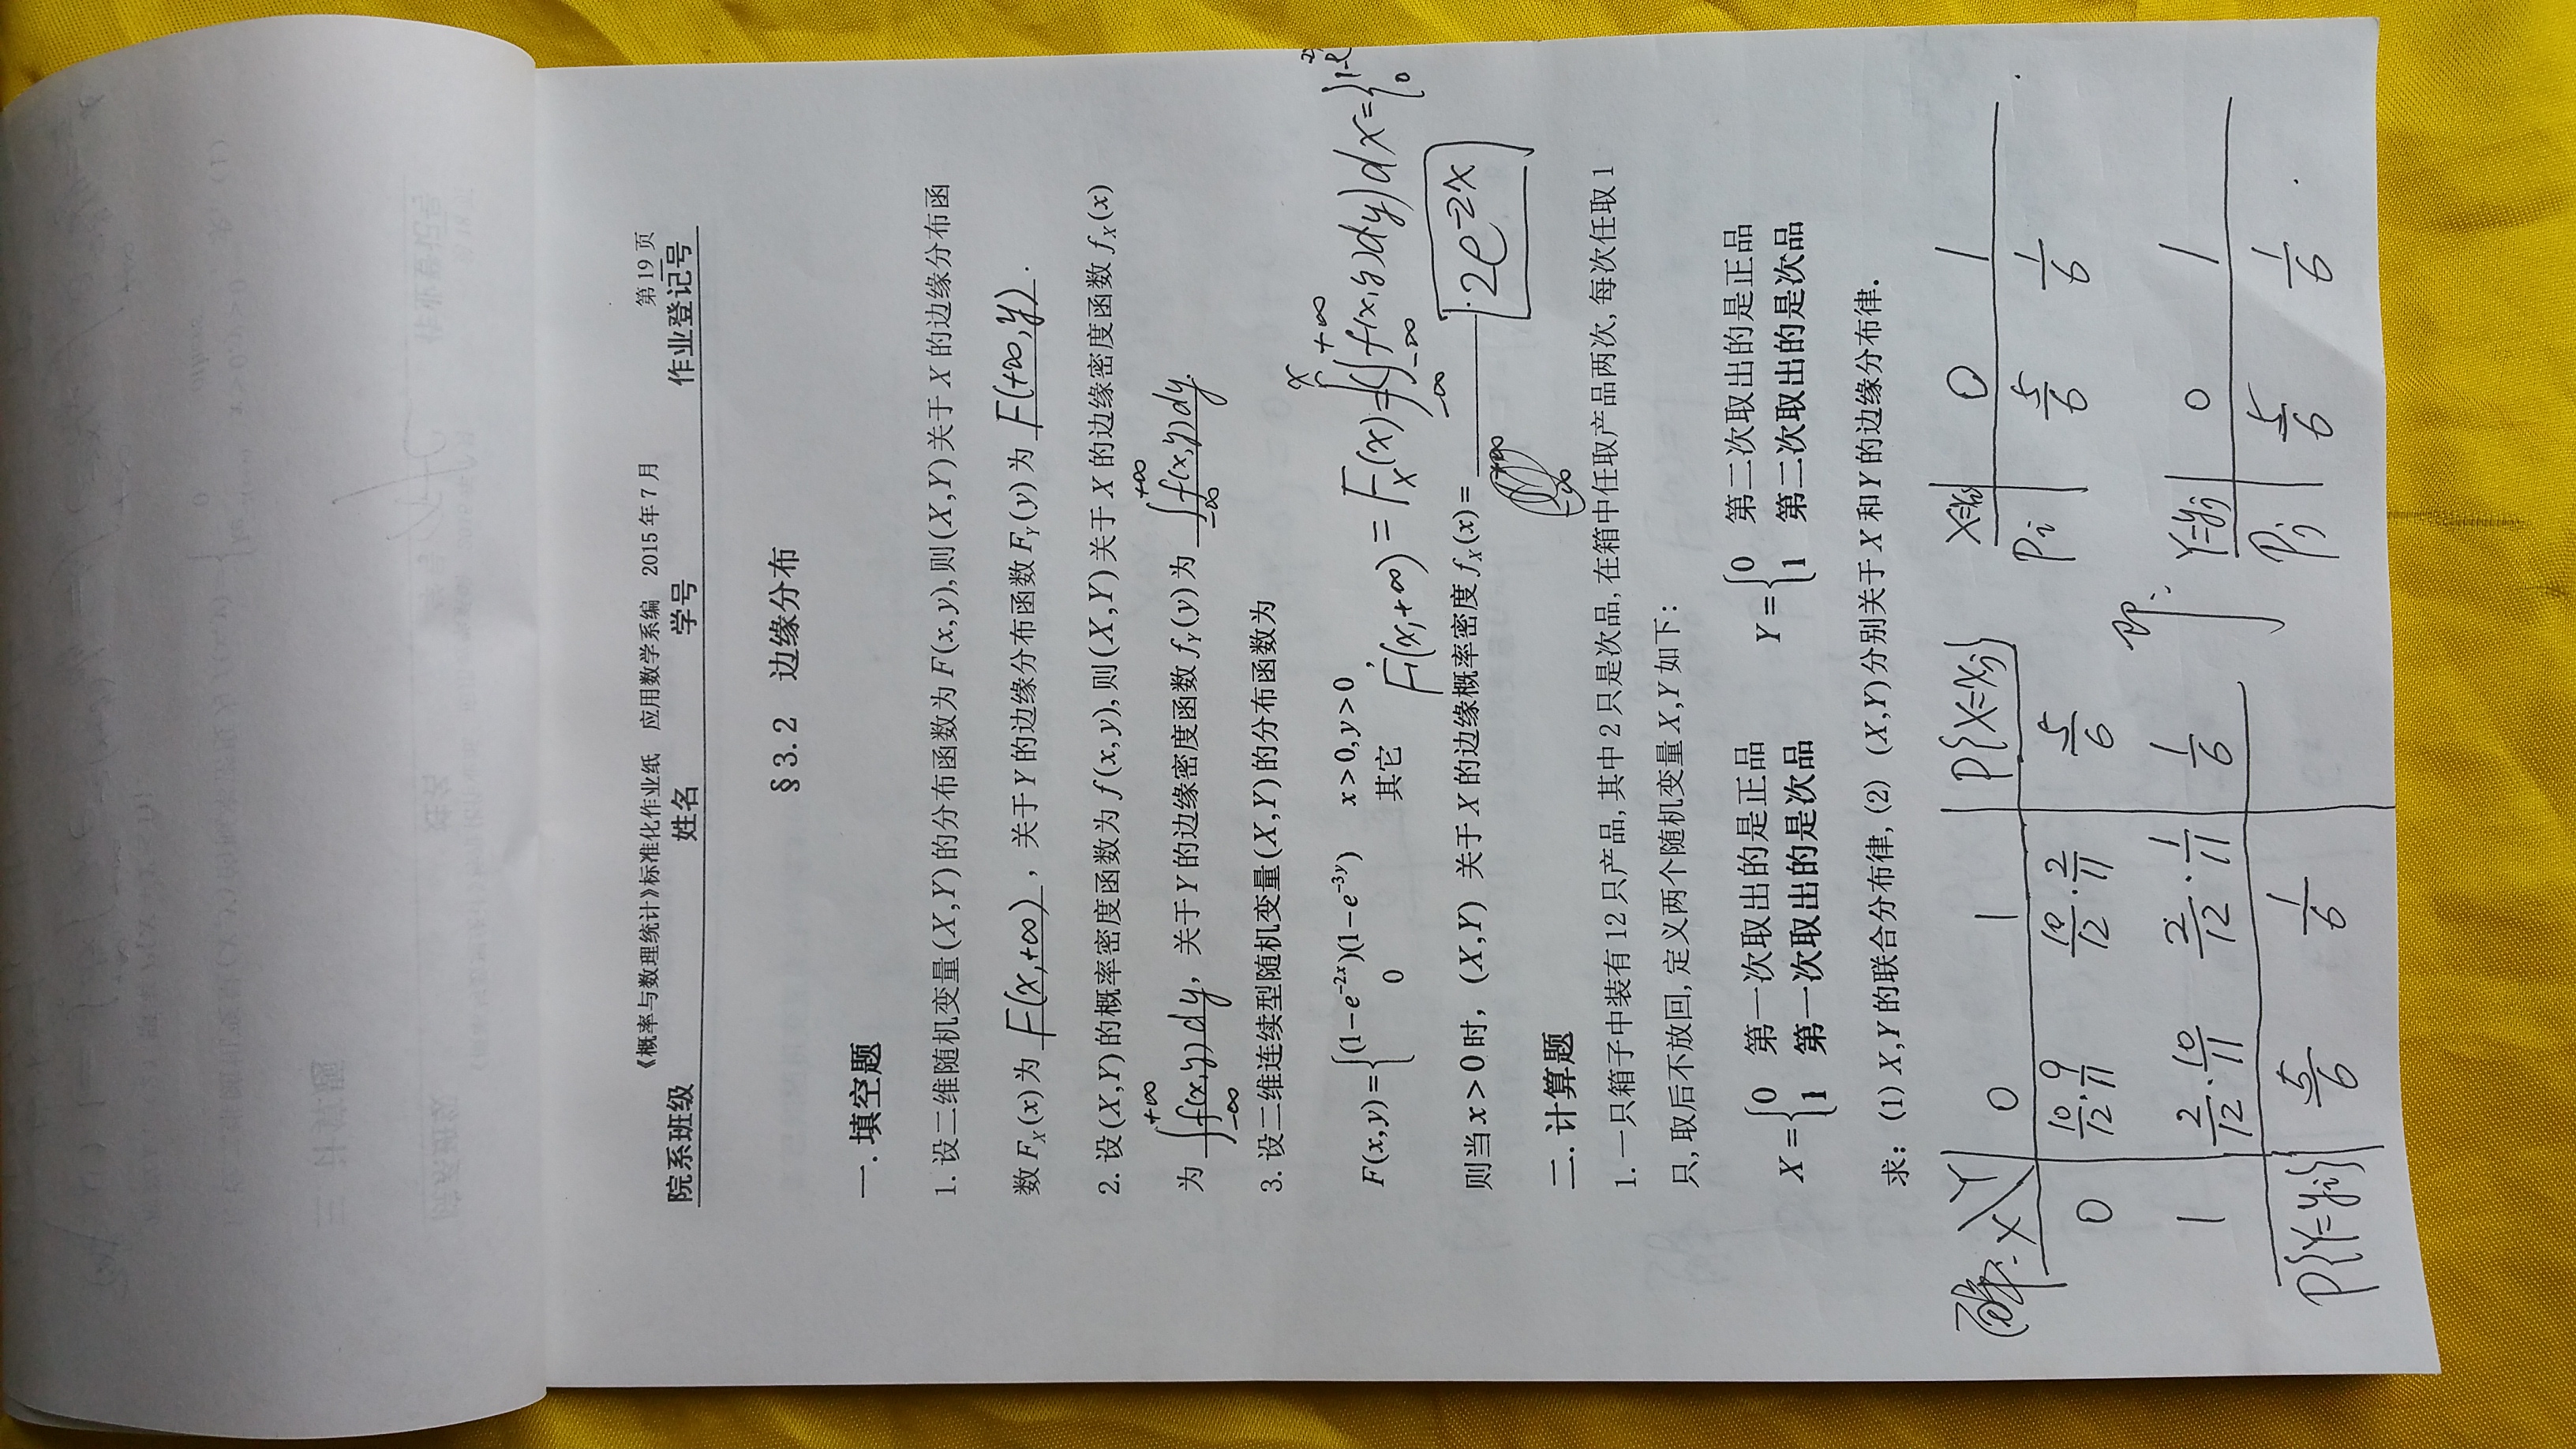 《概率与数理统计》标准化作业纸 应用数学系编 2015年7月 第19页
院系班级 姓名 学号 作业登记号
§3.2 边缘分布
一.填空题
1.设二维随机变量(X,Y)的分布函数为F(x,y),则(X,Y)关于X的边缘分布函
数F_X(x)为 F(x,+∞) ,关于Y的边缘分布函数F_Y(y)为 F(+∞,y) .
2.设(X,Y)的概率密度函数为f(x,y),则(X,Y)关于X的边缘密度函数f_X(x)
为 ∫_{-∞}^{+∞} f(x,y)dy, 关于Y的边缘密度函数f_Y(y)为 ∫_{-∞}^{+∞} f(x,y)dy.
3.设二维连续型随机变量(X,Y)的分布函数为
F(x,y)={(1-e^{-2x})(1-e^{-3y}) x>0,y>0
0 其它 ,
F(x,+∞)=F_X(x)=∫_{-∞}^{x}(∫_{-∞}^{+∞} f(x,y)dy)dx={
0
则当x>0时, (X,Y) 关于X的边缘概率密度f_X(x)= . 2e^{-2x}
+∞
-∞
二.计算题
1.一只箱子中装有12只产品,其中2只是次品,在箱中任取产品两次,每次任取1
只,取后不放回,定义两个随机变量X,Y如下:
X={0 第一次取出的是正品 Y={0 第二次取出的是正品
1 第一次取出的是次品 1 第二次取出的是次品
求: (1) X,Y的联合分布律, (2) (X,Y)分别关于X和Y的边缘分布律.
解: X\Y 0 1 P{X=xj}
0 10/12·9/11 10/12·2/11 5/6
1 2/12·10/11 2/12·1/11 1/6
P{Y=yi} 5/6 1/6
即:
X=xi 0 1
Pi 5/6 1/6 .
Y=yj 0 1
Pj 5/6 1/6 .